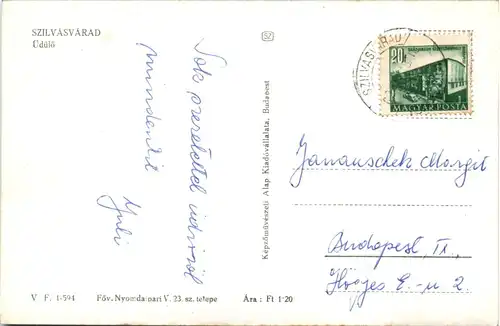 SZILVÁSVÁRAD
Üdülő
Sok szeretettel
mindenkit
Juli
Képzőművészeti Alap Kiadóvállalata, Budapest
52
SZILVÁSVÁRAD
20f
MAGYAR POSTA
Janauschek Margit
Budapest, II.,
Hőgyes E. - u 2.
V F. 1-594 Főv. Nyomdaipari V. 23. sz. telepe Ára : Ft 1·20